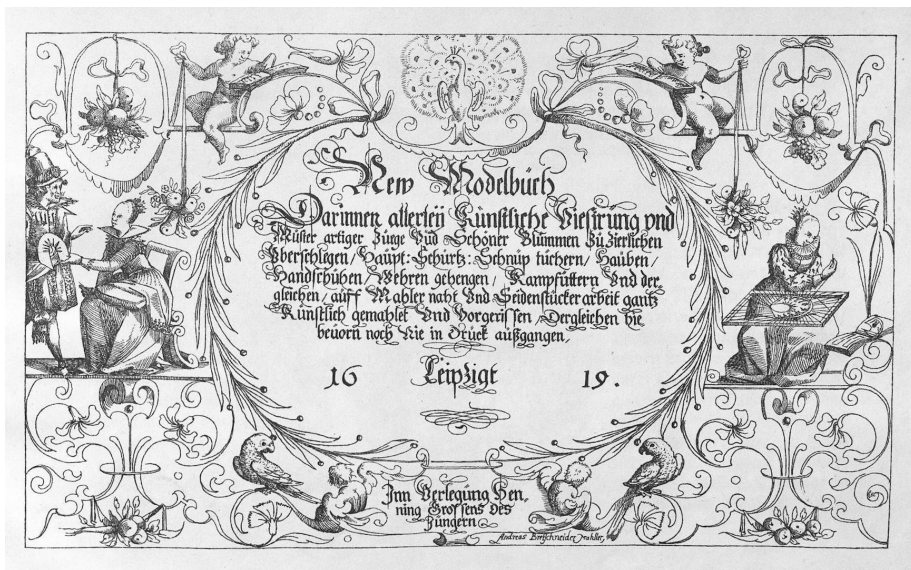 New Modelbüch
Darinnen allerleÿ Künstliche Viesirung vnd
Müster artiger Züge Vnd Schöner Blümmen Zü Zierlichen
Vberschlegen/ Haüpt: Schürtz: Schnüp tüchern/ Haüben/
Handschühen/ Wehren gehengen/ Kampfüttern Vnd der
gleichen/ auff Mahler naht Vnd Seidenstücker arbeit gantz
Künstlich gemahlet Vnd Vorgerissen/ Dergleichen hie
beuorn noch Nie in Drück aüßgangen,
16 Leipzigk 19.
Inn Verlegüng Hen,
ning Grossens des
Jüngern
Andreas Bretschneider Mahller,